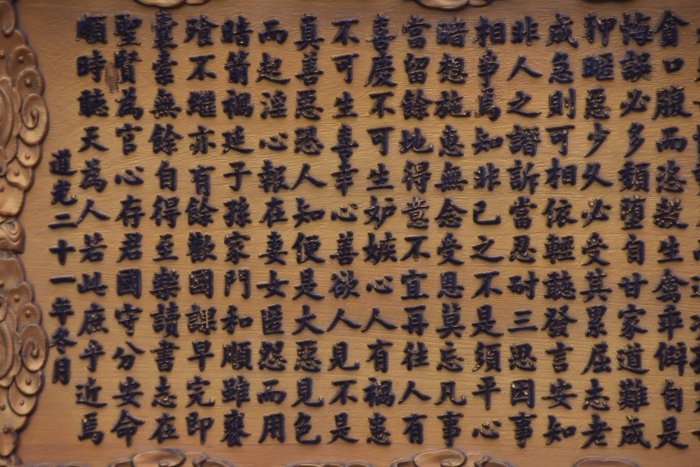 貪口腹而恣殺生禽乖僻自是
悔誤必多頹墮自甘家道難成
狎暱惡少久必受其累屈志老
成急則可相依輕聽發言安知
非人之譖訴當忍耐三思因事
相爭焉知非己之不是須平心
暗想施惠無念受恩莫忘凡事
當留餘地得意不宜再往人有
喜慶不可生妒嫉心人有禍患
不可生喜幸心善欲人見不是
真善惡恐人知便是大惡見色
而起淫心報在妻女匿怨而用
暗箭禍延子孫家門和順雖饔
飧不繼亦有餘歡國課早完即
囊橐無餘自得至樂讀書志在
聖賢為官心存君國守分安命
順時聽天為人若此庶乎近焉
道光二十一年冬月